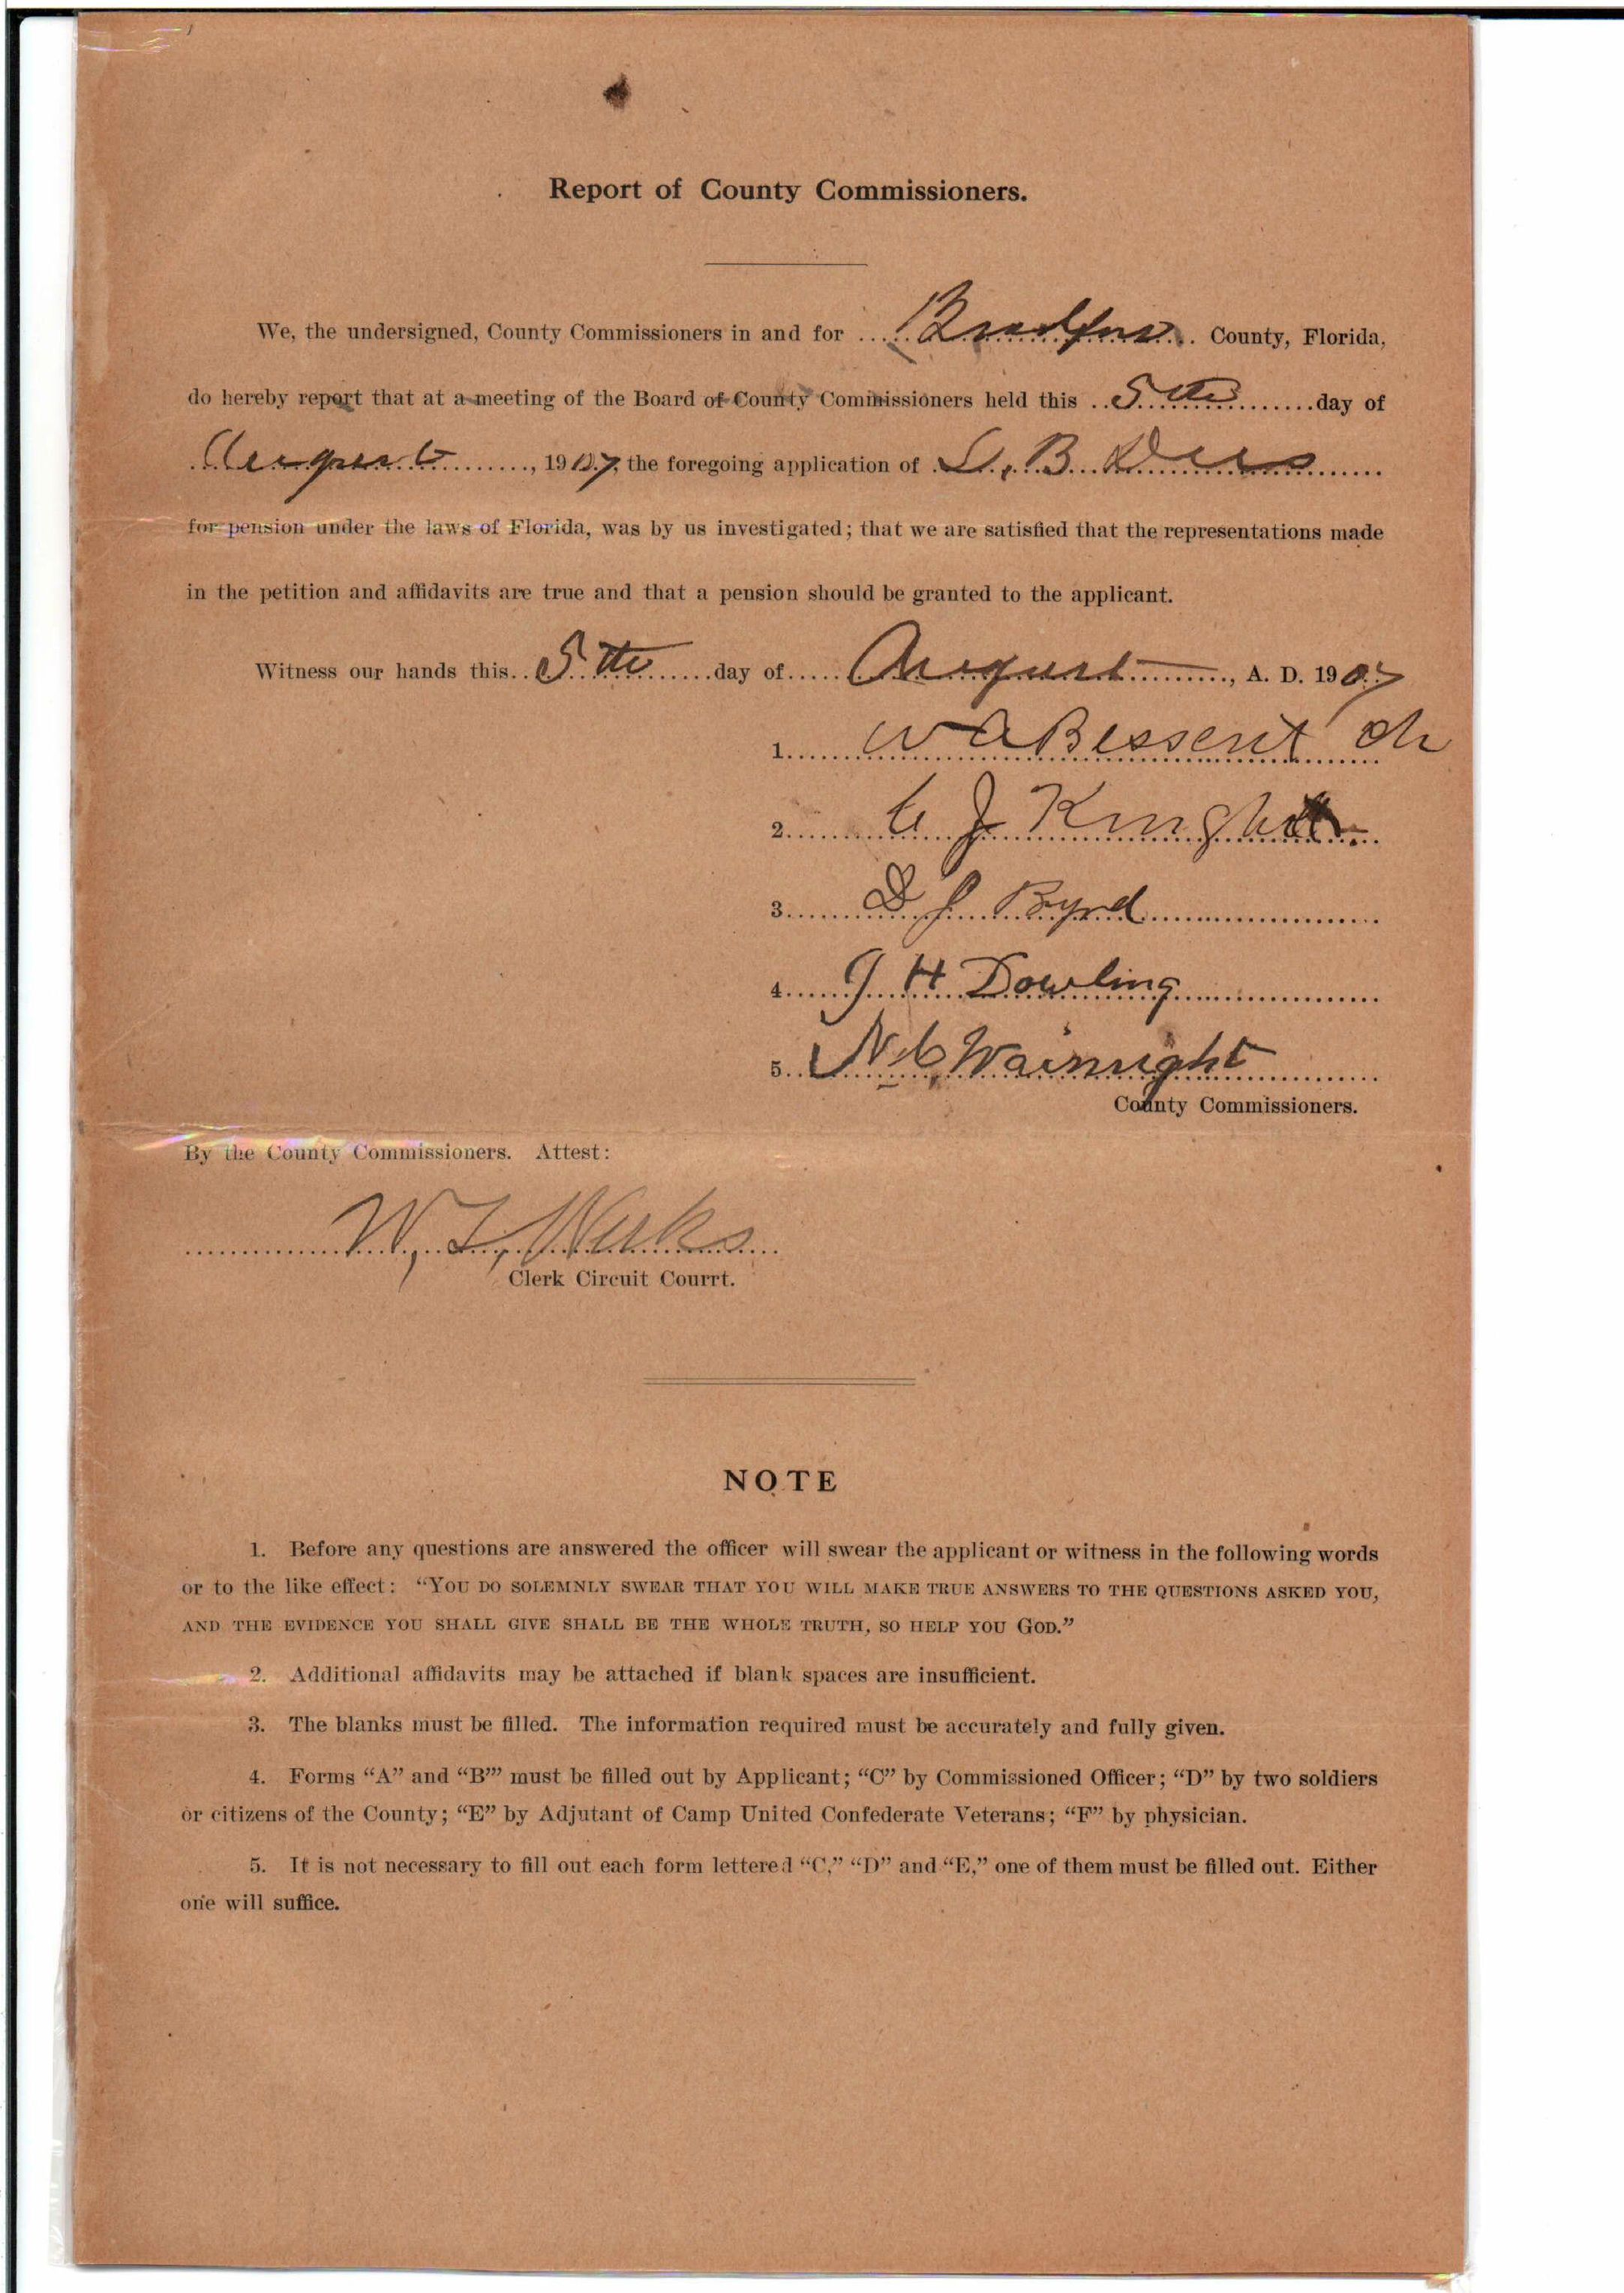 Report of County Commissioners.
We, the undersigned, County Commissioners in and for Bradford County, Florida,
do hereby report that at a meeting of the Board of County Commissioners held this 5th day of
August, 1907, the foregoing application of B.
for pension under the laws of Florida, was by us investigated; that we are satisfied that the representations made
in the petition and affidavits are true and that a pension should be granted to the applicant.
Witness our hands this 5th day of August, A. D. 1907
1. W A Bessent Ch
2. C J Knight
3. D J Byrd
4. J H Dowling
5. N C Wainright
County Commissioners.
By the County Commissioners. Attest:
W, T, Weeks
Clerk Circuit Courrt.
NOTE
1. Before any questions are answered the officer will swear the applicant or witness in the following words
or to the like effect: “YOU DO SOLEMNLY SWEAR THAT YOU WILL MAKE TRUE ANSWERS TO THE QUESTIONS ASKED YOU,
AND THE EVIDENCE YOU SHALL GIVE SHALL BE THE WHOLE TRUTH, SO HELP YOU GOD.”
2. Additional affidavits may be attached if blank spaces are insufficient.
3. The blanks must be filled. The information required must be accurately and fully given.
4. Forms “A” and “B”’ must be filled out by Applicant; “C” by Commissioned Officer; “D” by two soldiers
or citizens of the County; “E” by Adjutant of Camp United Confederate Veterans; “F” by physician.
5. It is not necessary to fill out each form lettered “C,” “D” and “E,” one of them must be filled out. Either
one will suffice.